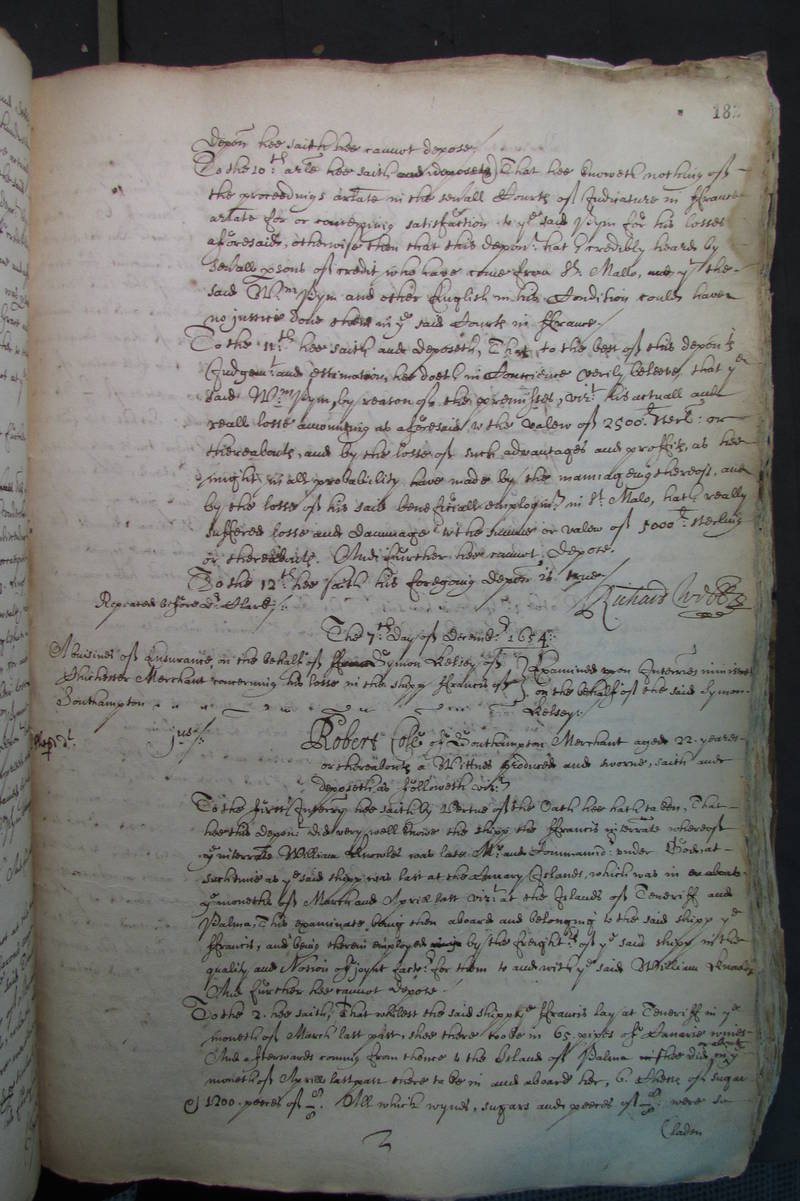 182
depon.t hee saith hee cannot depose./
To the 10:th ar.le hee saith and deposeth, That hee knoweth nothing of
the proceedings arlate in the severall Courts of Judicature in ffrance
arlate for or concerning satisfaction to y.e said Pym for his losses
aforesaid, otherwise then that this depon.t hath credibly heard by
severall psons of credit who have come from S.t Mallo, y.t the
said W.m Pym and other English in his Condition could have
no justice done them in y.e said Courts in ffrance./
To the 11.th hee saith and deposeth, That to the best of this depon.ts
Judgem.t and estimation, hee doeth in Conscience verily beleeve that y.e
said W.m Pym, by reason of the premisses, viz.t his actuall and
reall losse amounting as aforesaid to the valew of 2500.li sterl: or
thereabouts, and by the losse of such advantages and proffits, as hee
might in all probability have made by the mannageing thereof, and
by the losse of his said beneficiall employm.t in S.t Malo, hath really
suffered losse and dammage to the summe or valew of 5000.li sterling
or thereabouts. And further hee cannot depose.
To the 12.th hee saith his foregoing depon is true/
Richard Webb
Repeated before D.r Clark:/.
The 7.th Day of Decemb.r 1654:
A busines of Insurance on the behalf of Symon Kelsey of
Chichester Merchant concerning his losse in the shipp ffrancis of
Southampton
Examined upon Interries ministred
on the behalf of the said Symon
Kelsey:
jus./.
Robert Cole of Southampton Merchant aged 22. yeares
or thereabouts a Wittnes produced and sworne, saith and
deposeth as followeth viz.t
To the first Interry hee saith by Vertue of the Oath hee hath taken. That
hee this depon.t did very well knowe the shipp the ffrancis interrate whereof
y.e interrate William Knowles was late M.r and Commaund.r under God at
such time as y.e said shipp was last at the Canary Islands, which was in or about
y.e moneths of March and Aprill last viz.t at the Islands of Teneriff and
Palma, This examinate being then aboard and belonging to the said shipp y.e
ffrancis, and being therein employed by the freight.rs of y.e said shipp in the
quality and Notion of joynt factor for them to and with y.e said William Knowles
And further hee cannot depose.
To the 2. hee saith, That whilest the said shipp y.e ffrancis lay at Teneriff in y.e
moneth of March last past, shee there tooke in 65 pipes of Canarie wines
And afterwards coming from thence to the Island of Palma shee did, in or about y.e
moneth of Aprill last past there take in and aboard her, 6. Chests of sugar
& 1200. peeces of 8/8. All which wynes, sugars and peeces of 8/8 were so
laden